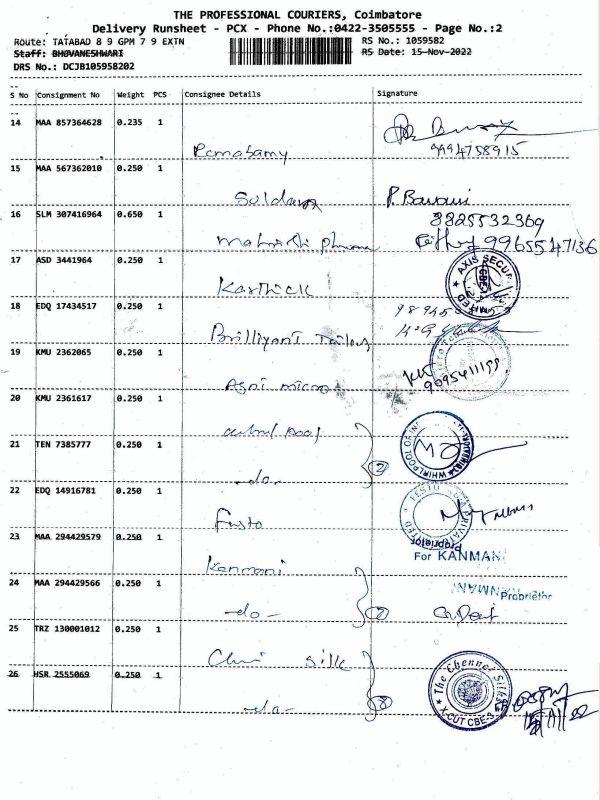 THE PROFESSIONAL COURIERS, Coimbatore
Delivery Runsheet - PCX - Phone No.:0422-3505555 - Page No.:2
Route: TATABAD 8 9 GPM 7 9 EXTN
RS No.: 1059582
Staff: BHUVANESHWARI
RS Date: 15-Nov-2022
DRS No.: DCJB105958202
S No Consignment No Weight PCS Consignee Details Signature
14 MAA 857364628 0.235 1
Ramasamy
9994758915
15 MAA 567362010 0.250 1
P. Bavani
16 SLM 307416964 0.650 1
8825532369
9965547136
17 ASD 3441964 0.250 1
AXIS SECUR
CBE-12
LIMITED
Karthick
18 EDQ 17434517 0.250 1
Brilliyant Tailors
19 KMU 2362065 0.250 1
9095411199
Agni micro
20 KMU 2361617 0.250 1
21 TEN 7385777 0.250 1
WHIRLPOOL OF IN
-do-
2
22 EDQ 14916781 0.250 1
FESTO
PRIVATE
LIMITED
Festo
Proprietor
23 MAA 294429579 0.250 1
For KANMANI
Kanmani
24 MAA 294429566 0.250 1
KANMANI
Proprietor
-do-
2
25 TRZ 130001012 0.250 1
silk
26 HSR 2555069 0.250 1
The Chennai Silks
X-CUT CBE-9
-do-